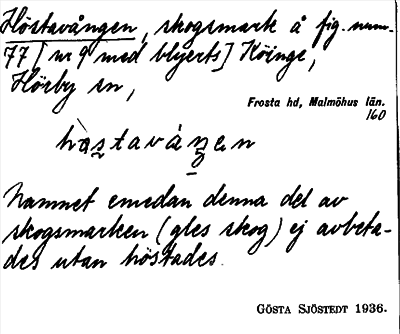 Höstavången, skogsmark å fig. num-
77 [nr 9 med blyerts] Köinge,
Hörby sn,
Frosta hd, Malmöhus län.
160
Namnet emedan denna del av
skogsmarken (gles skog) ej avbeta-
des utan höstades.
GÖSTA SJÖSTEDT 1936.